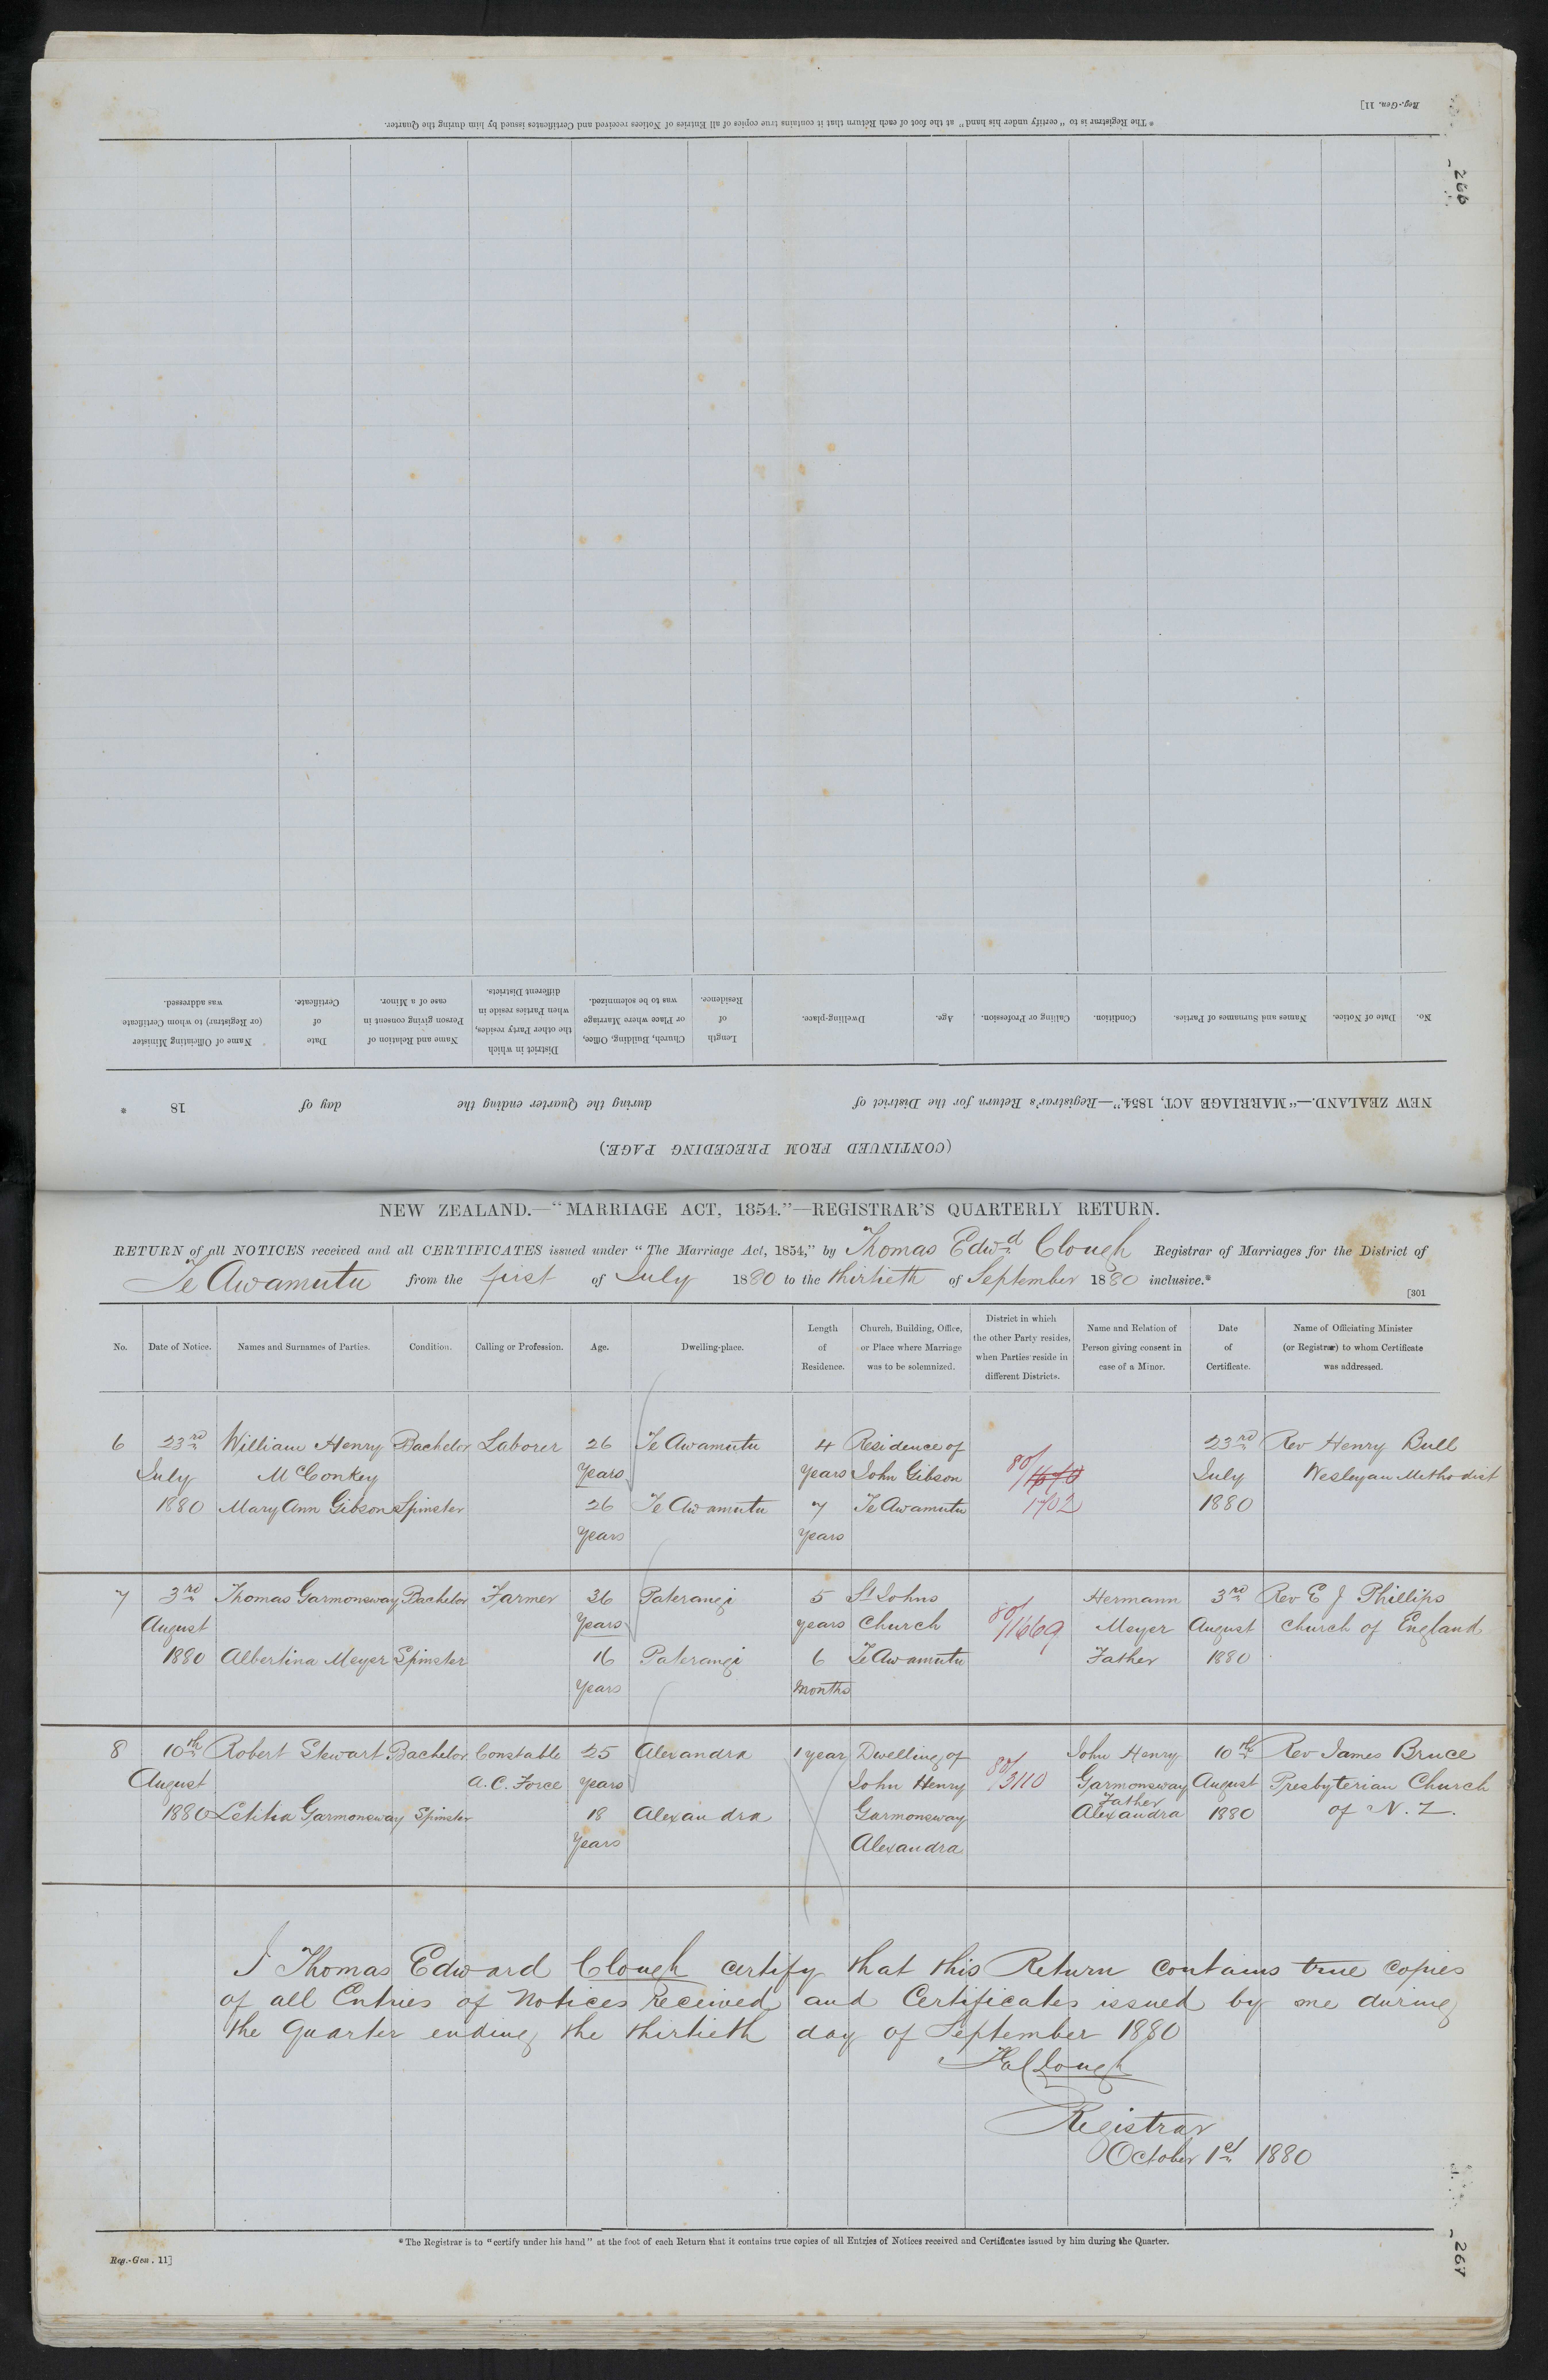 Reg.-Gen. 11]
*The Registrar is to "certify under his hand" at the foot of each Return that it contains true copies of all Entries of Notices received and Certificates issued by him during the Quarter.
266
(CONTINUED FROM PRECEDING PAGE.)
NEW ZEALAND.—"MARRIAGE ACT, 1854."—Registrar's Return for the District of during the Quarter ending the day of 18 *
No. Date of Notice. Names and Surnames of Parties. Condition. Calling or Profession. Age. Dwelling-place. Length of Residence. Church, Building, Office, or Place where Marriage was to be solemnized. District in which the other Party resides, when Parties reside in different Districts. Name and Relation of Person giving consent in case of a Minor. Date of Certificate. Name of Officiating Minister (or Registrar) to whom Certificate was addressed.
NEW ZEALAND.—"MARRIAGE ACT, 1854."—REGISTRAR'S QUARTERLY RETURN.
RETURN of all NOTICES received and all CERTIFICATES issued under "The Marriage Act, 1854," by Thomas Edwd Clough Registrar of Marriages for the District of
Te Awamutu from the first of July 1880 to the thirtieth of September 1880 inclusive.*
[301
No. Date of Notice. Names and Surnames of Parties. Condition. Calling or Profession. Age. Dwelling-place. Length of Residence. Church, Building, Office, or Place where Marriage was to be solemnized. District in which the other Party resides, when Parties reside in different Districts. Name and Relation of Person giving consent in case of a Minor. Date of Certificate. Name of Officiating Minister (or Registrar) to whom Certificate was addressed.
6 23rd William Henry Bachelor Laborer 26 Te Awamutu 4 Residence of 23rd Rev Henry Bull
July McConkey Years years John Gibson 80/ July Wesleyan Methodist
1880 Mary Ann Gibson Spinster 26 Te Awamutu 7 Te Awamutu 1702 1880
Years years
7 3rd Thomas Garmonsway Bachelor Farmer 36 Paterangi 5 St Johns Hermann 3rd Rev E J Phillips
August Years years Church 80/1669 Meyer August Church of England
1880 Albertina Meyer Spinster 16 Paterangi 6 Te Awamutu Father 1880
Years months
8 10th Robert Stewart Bachelor Constable 25 Alexandra 1 year Dwelling of John Henry 10th Rev James Bruce
August A.C. Force years John Henry 80/3110 Garmonsway August Presbyterian Church
Father
1880 Letitia Garmonsway Spinster 18 Alexandra Garmonsway Alexandra 1880 of N.Z.
Years Alexandra
I Thomas Edward Clough certify that this Return contains true copies
of all Entries of Notices Received and Certificates issued by me during
the Quarter ending the thirtieth day of September 1880
Clough
Registrar
October 1st 1880
*The Registrar is to "certify under his hand" at the foot of each Return that it contains true copies of all Entries of Notices received and Certificates issued by him during the Quarter.
Reg.-Gen. 11]
267